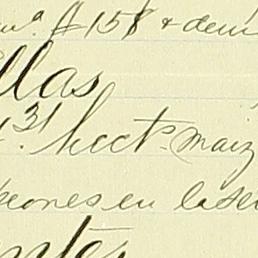 $158 & dem
llas
31 hects. maiz
peones en la se
ntes